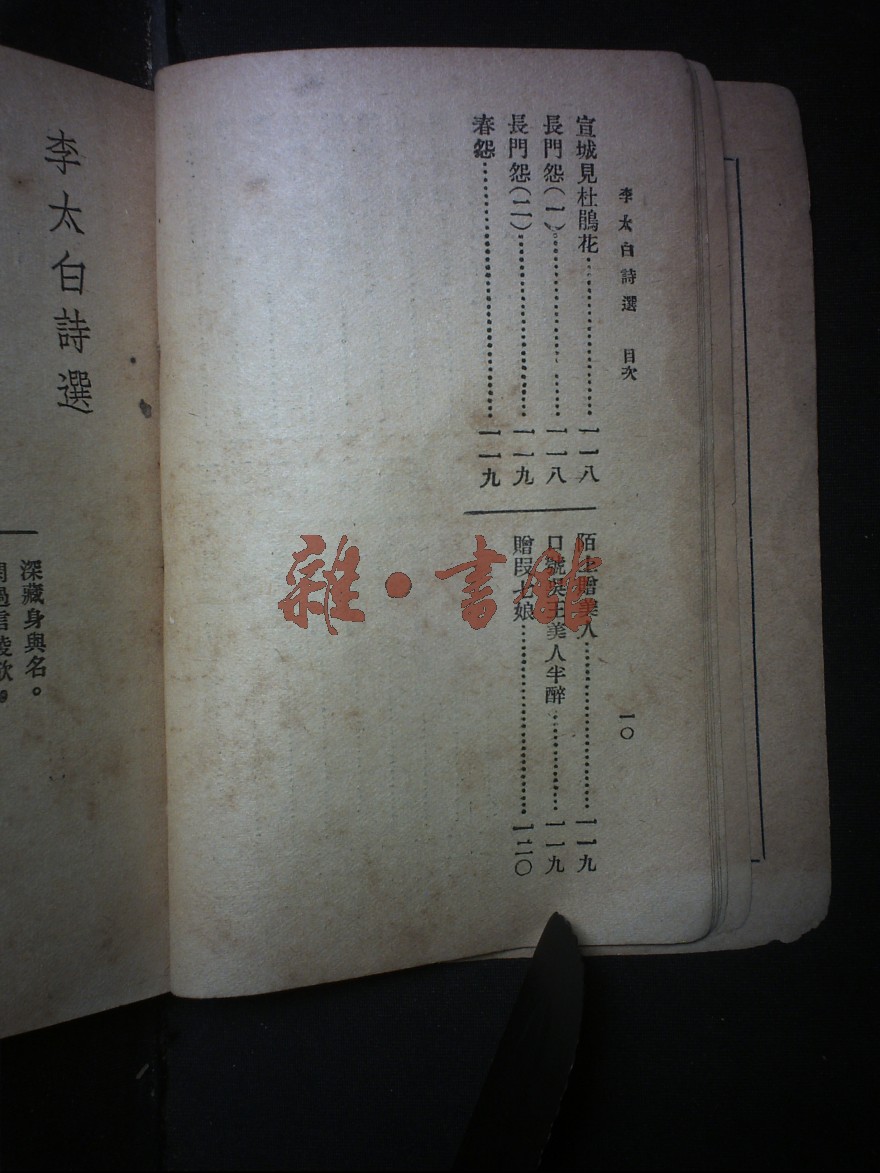 李太白詩選 目次 一〇
宣城見杜鵑花 一一八
長門怨(一) 一一八
長門怨(二) 一一九
春怨 一一九
陌上贈美人 一一九
口號吳王美人半醉 一一九
贈段七娘 一二〇
李太白詩選
深藏身與名。
閒過信陵飲。
雜·書館